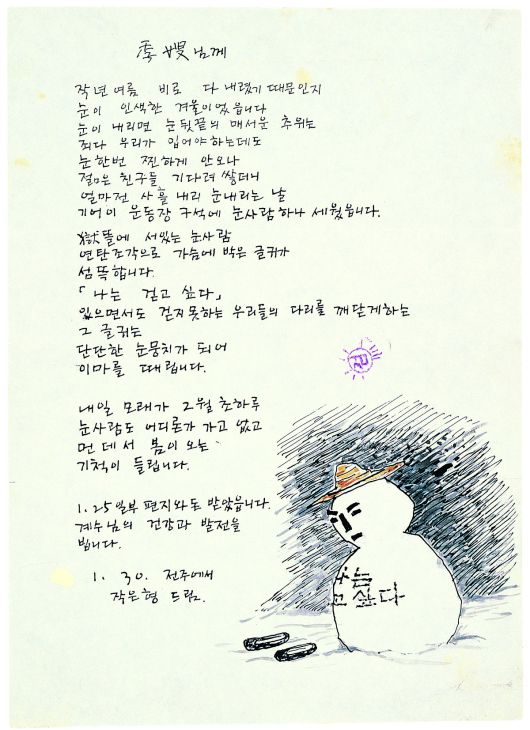 季嫂님께
작년여름 비로 다 내렸기 때문인지
눈이 인색한 겨울이었읍니다
눈이 내리면 눈 뒷끝의 매서운 추위는
죄다 우리가 입어야 하는데도
눈 한번 찐하게 안오나
젊은 친구들 기다려 쌓더니
얼마전 사흘 내리 눈내리는 날
기어이 운동장 구석에 눈사람 하나 세웠읍니다.
獄뜰에 서있는 눈사람
연탄조각으로 가슴에 박은 글귀가
섬뜩합니다.
「나는 걷고 싶다」
있으면서도 걷지못하는 우리들의 다리를 깨닫게하는
그 글귀는
단단한 눈뭉치가 되어
이마를 때립니다.
내일 모레가 2월 초하루
눈사람도 어디론가 가고 없고
먼 데서 봄이 오는
기척이 들립니다.
1. 25일부 편지와 돈 받았읍니다.
계수님의 건강과 발전을
빕니다.
1. 30. 전주에서
작은형 드림.
나는
고 싶다